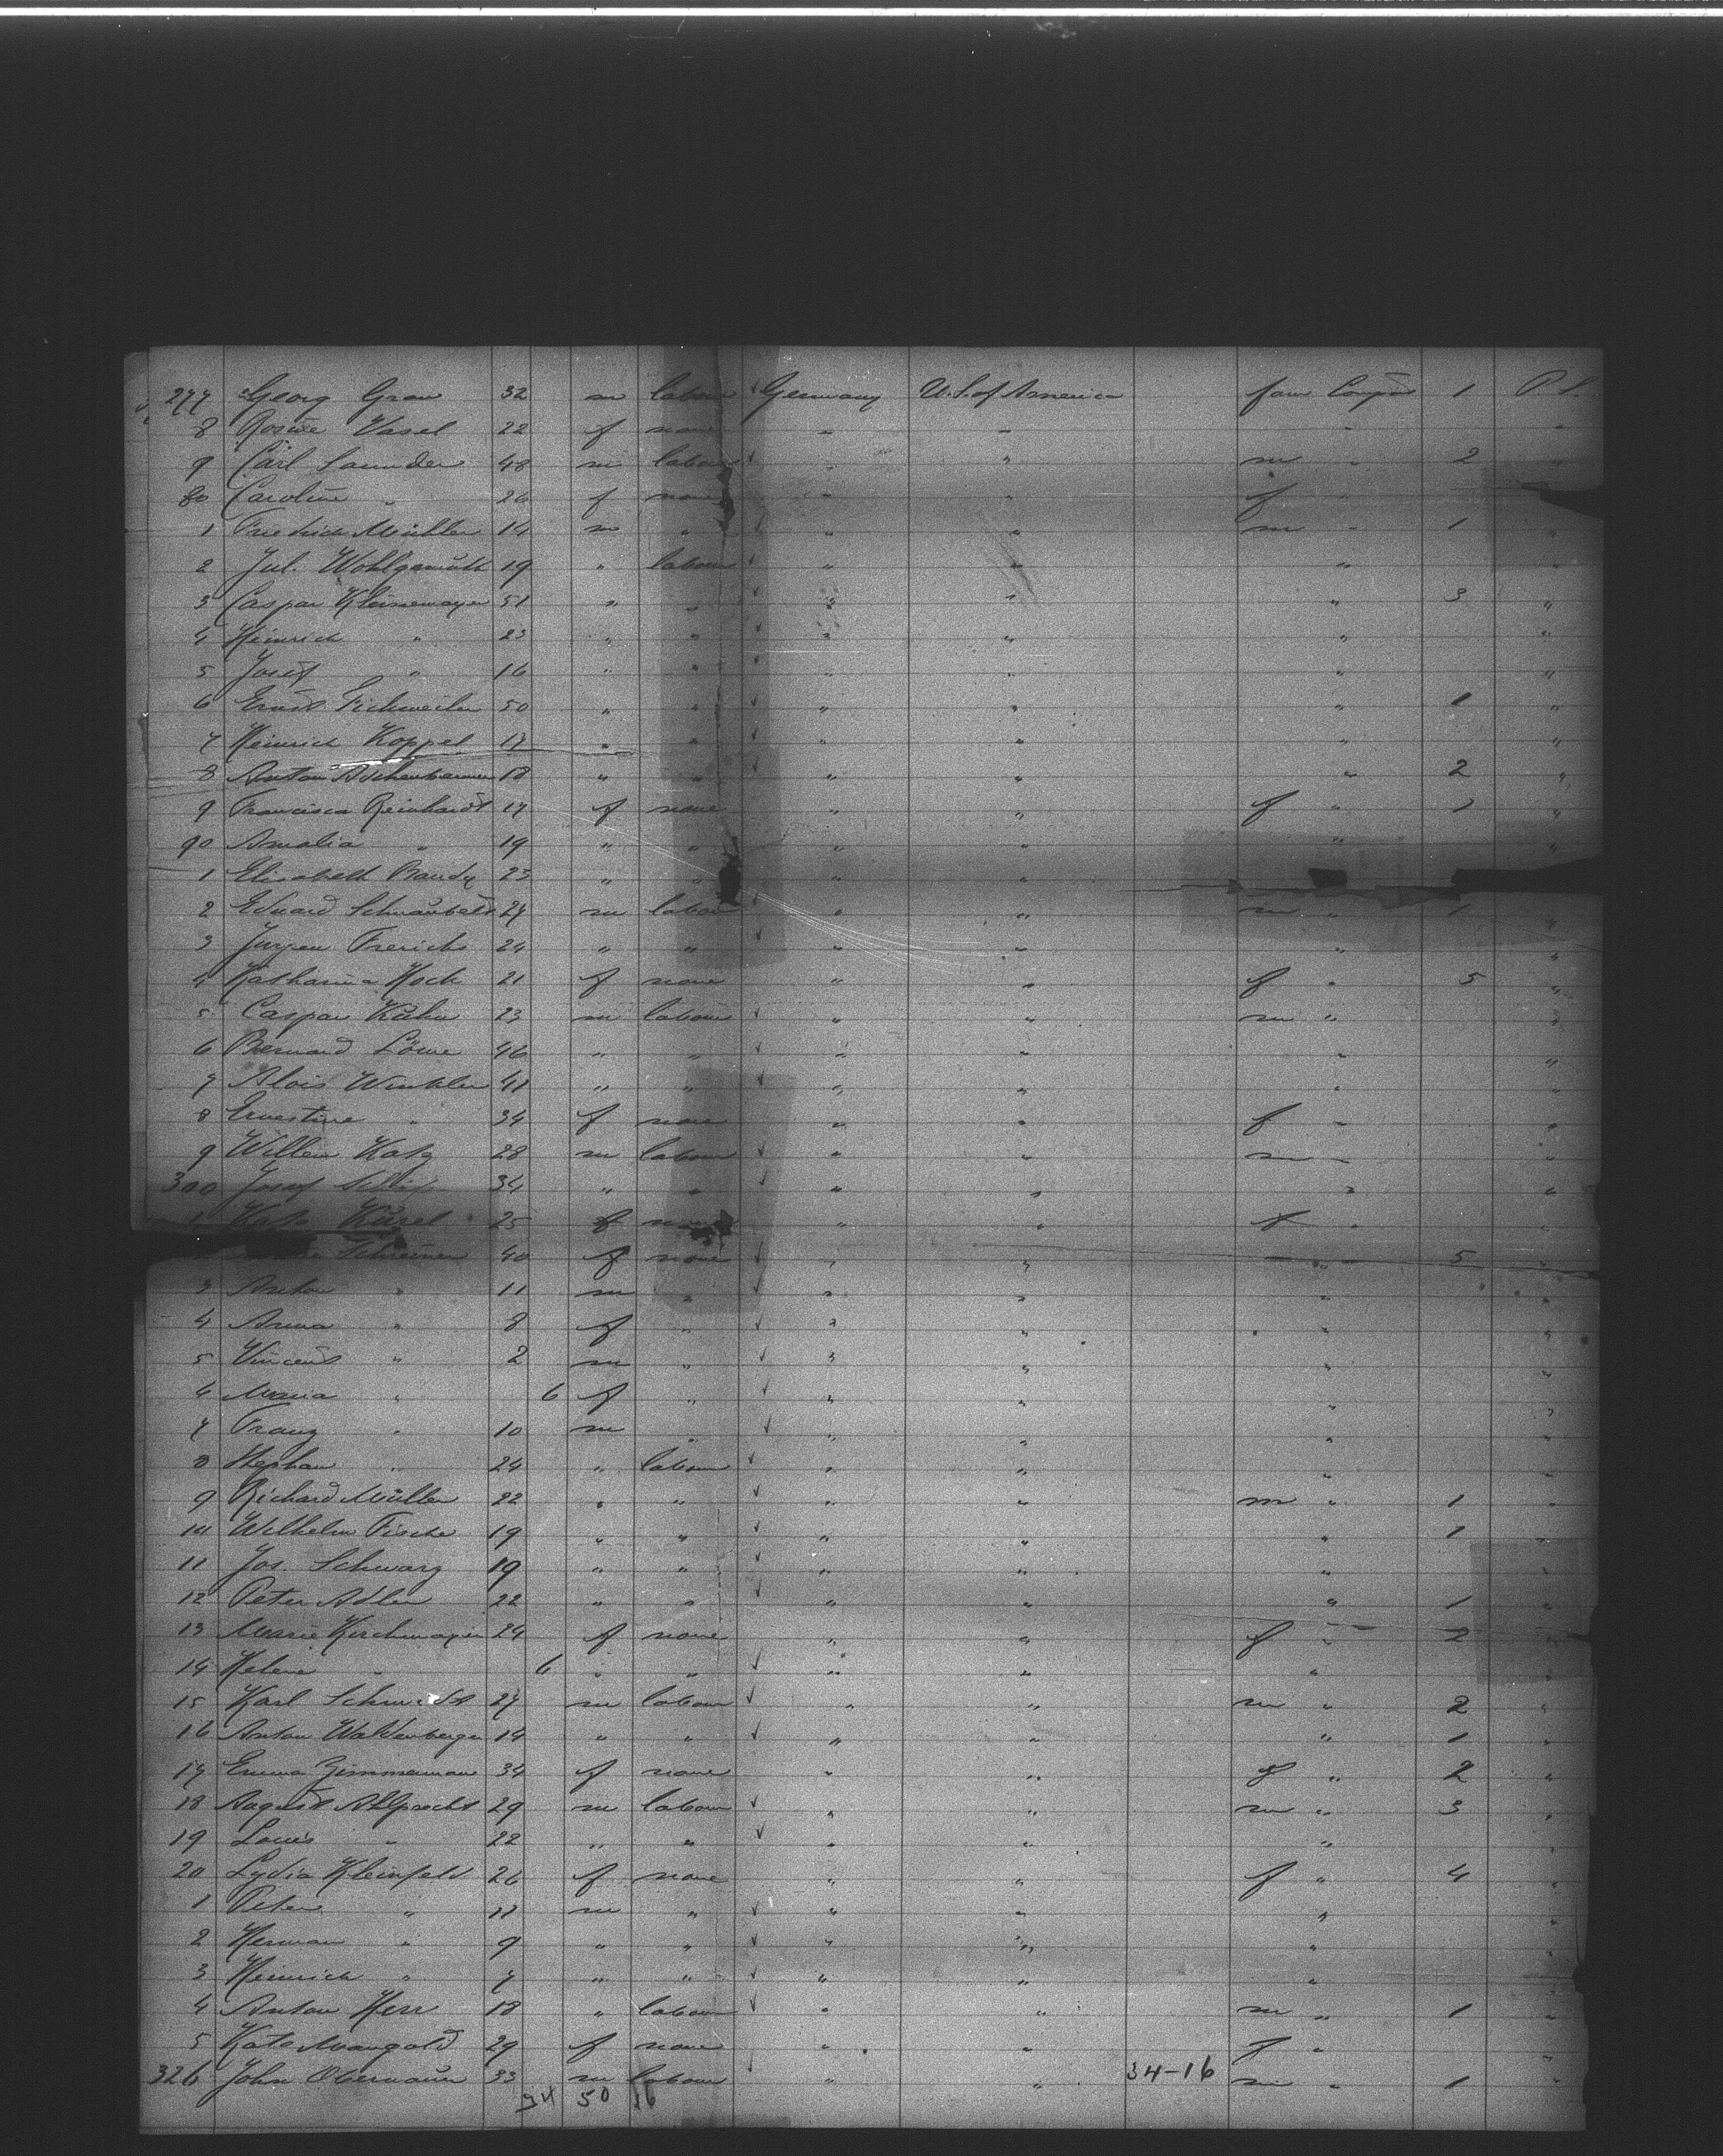 277 Georg Grau 32 m labour ✓ Germany U.S. of America fam Comp 1 P.L.
8 Rosine Vasel 22 f none " " " "
9 Carl Saunder 48 m labour ✓ " " m " 2 "
80 Caroline " 26 f none " " f "
1 Friedrich Müller 14 m " ✓ " " m " 1 "
2 Jul. Wohlgemuth 19 " labour ✓ " " " "
3 Caspar Kleinemayer 51 " " ✓ " " " 3 "
4 Heinrich " 23 " " ✓ " " " "
5 Josef " 16 " " ✓ " " " "
6 Ernst 50 " " ✓ " " " 1 "
7 Heinrich Koppel 17 " " ✓ " " " "
8 Anton 18 " " ✓ " " " 2 "
9 Francisca Reinhardt 17 f none " " f " 1 "
90 Amalia " 19 " " " " " "
1 Elisabeth Bandy 23 " " " "
2 Eduard 27 m labour ✓ " " m " 1 "
3 Jurgen Frerichs 24 " " ✓ " " " "
4 Katharina Hock 21 f none " " f " 5 "
5 Caspar Kuhn 23 m labour ✓ " " m " "
6 Bernard Löwe 46 " " ✓ " " " "
7 Alois Winkler 41 " " ✓ " " " "
8 Ernestine " 34 f none " " f " "
9 Willem Katz 28 m labour ✓ " " m " "
300 Josef 34 " " ✓ " " " "
1 Kate 25 f none " " f " "
Schreiner 40 f none ✓ " " " 5 "
3 Anton " 11 m " ✓ " " " "
4 Anna " 8 f " ✓ " " " "
5 Vincent " 2 m " ✓ " " " "
6 Maria " 6 f " ✓ " " " "
7 Franz " 10 m " ✓ " " " "
8 Stephan " 24 " labour ✓ " " " "
9 Richard Müller 22 " " ✓ " " m " 1 "
10 Wilhelm Fische 19 " " ✓ " " " 1 "
11 Jos. Schwarz 19 " " ✓ " " " "
12 Peter Adler 22 " " ✓ " " " 1 "
13 Marie Kirchmayer 24 f none " " f " 2 "
14 Helene " 6 " " ✓ " " " "
15 Karl Schmidt 27 m labour ✓ " " m " 2 "
16 Anton Waldenberger 14 " " ✓ " " " 1 "
17 Emma Zimmermann 34 f none " " f " 2 "
18 August Ahlprecht 29 m labour ✓ " " m " 3 "
19 Louis " 22 " " ✓ " " " "
20 Lydia Kleinfeld 26 f none " " f " 4 "
1 Peter " 11 m " ✓ " " " "
2 Herman " 9 " " ✓ " " " "
3 Heinrich " 7 " " ✓ " " " "
4 Anton Herr 18 " labour ✓ " " m " 1 "
5 Kate Mangold 29 f none " " f " "
326 John Obernauer 33 m labour ✓ " " 34-16 m " 1 "
34 50 16